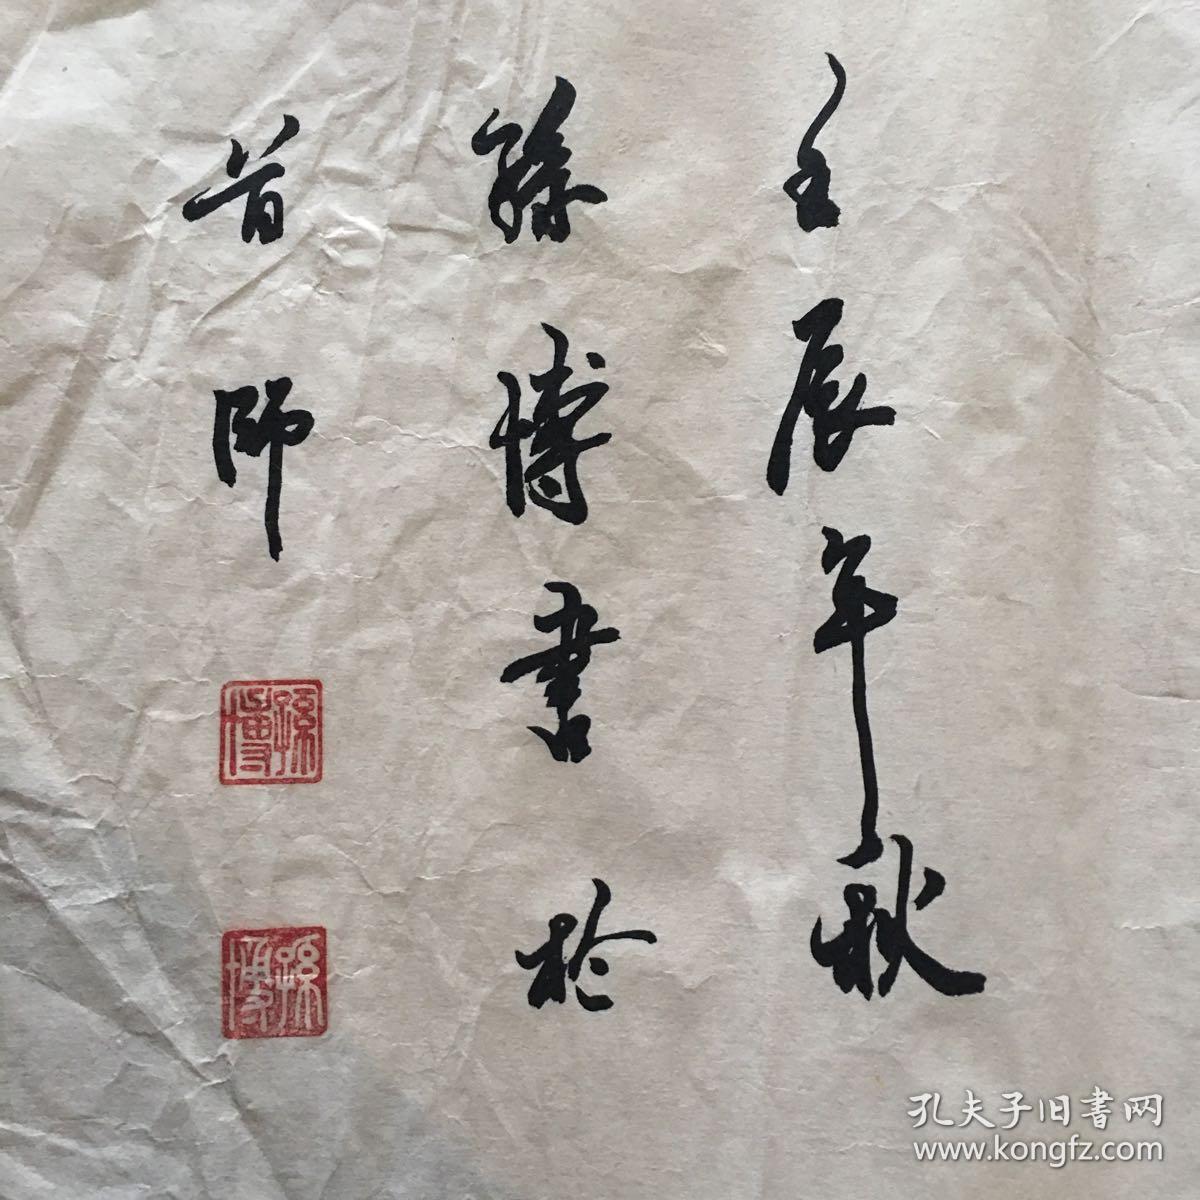 壬辰年秋
孫博書於
首師
孫博
孫博
孔夫子旧書网
www.kongfz.com